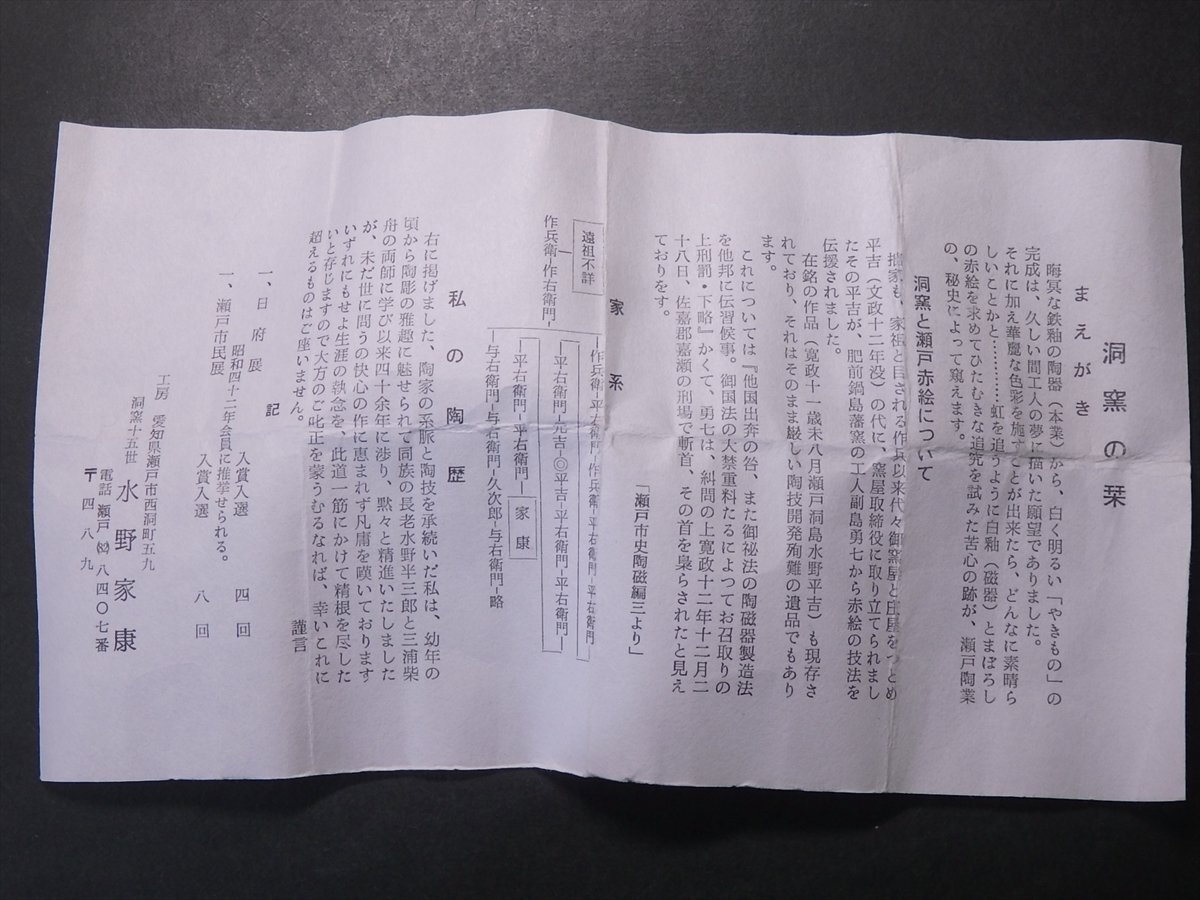 洞窯の栞
まえがき
晦冥な鉄釉の陶器（本業）から、白く明るい「やきもの」の
完成は、久しい間工人の夢に描いた願望でありました。
それに加え華麗な色彩を施すことが出来たら、どんなに素晴ら
しいことかと…………虹を追うように白釉（磁器）とまぼろし
の赤絵を求めてひたむきな追究を試みた苦心の跡が、瀬戸陶業
の、秘史によって窺えます。
洞窯と瀬戸赤絵について
拙家も、家祖と目される作兵以来代々御窯屋と庄屋をつとめ
平吉（文政十二年没）の代に、窯屋取締役に取り立てられまし
たその平吉が、肥前鍋島藩窯の工人副島勇七から赤絵の技法を
伝授されました。
在銘の作品（寛政十一歳未八月瀬戸洞島水野平吉）も現存さ
れており、それはそのまま厳しい陶技開発殉難の遺品でもあり
ます。
これについては『他国出奔の咎、また御祕法の陶磁器製造法
を他邦に伝習候事。御国法の大禁重料たるによつてお召取りの
上刑罰・下略』かくて、勇七は、糾問の上寛政十二年十二月二
十八日、佐嘉郡嘉瀬の刑場で斬首、その首を梟らされたと見え
ておりをす。
「瀬戸市史陶磁編三より」
家系
遠祖不詳
作兵衛―作右衛門―
―作兵衛―平左衛門―作兵衛―平右衛門―平右衛門―
―平右衛門―元吉―◎平吉―平右衛門―平右衛門―
―平右衛門―平右衛門―家康
―与右衛門―与右衛門―久次郎―与右衛門―略
私の陶歴
右に掲げました、陶家の系脈と陶技を承続いだ私は、幼年の
頃から陶彫の雅趣に魅せられて同族の長老水野半三郎と三浦柴
舟の両師に学び以来四十余年に渉り、黙々と精進いたしました
が、未だ世に問うの快心の作に恵まれず凡庸を嘆いております。
いずれにもせよ生涯の執念を、此道一筋にかけて精根を尽した
いと存じますので大方のご叱正を蒙うむるなれば、幸いこれに
超えるものはご座いません。
謹言
記
一、日府展　入賞入選　四回
昭和四十二年会員に推挙せられる。
一、瀬戸市民展　入賞入選　八回
工房　愛知県瀬戸市西洞町五九
洞窯十五世　水野家康
電話　瀬戸㈹八四〇七番
〒四八九